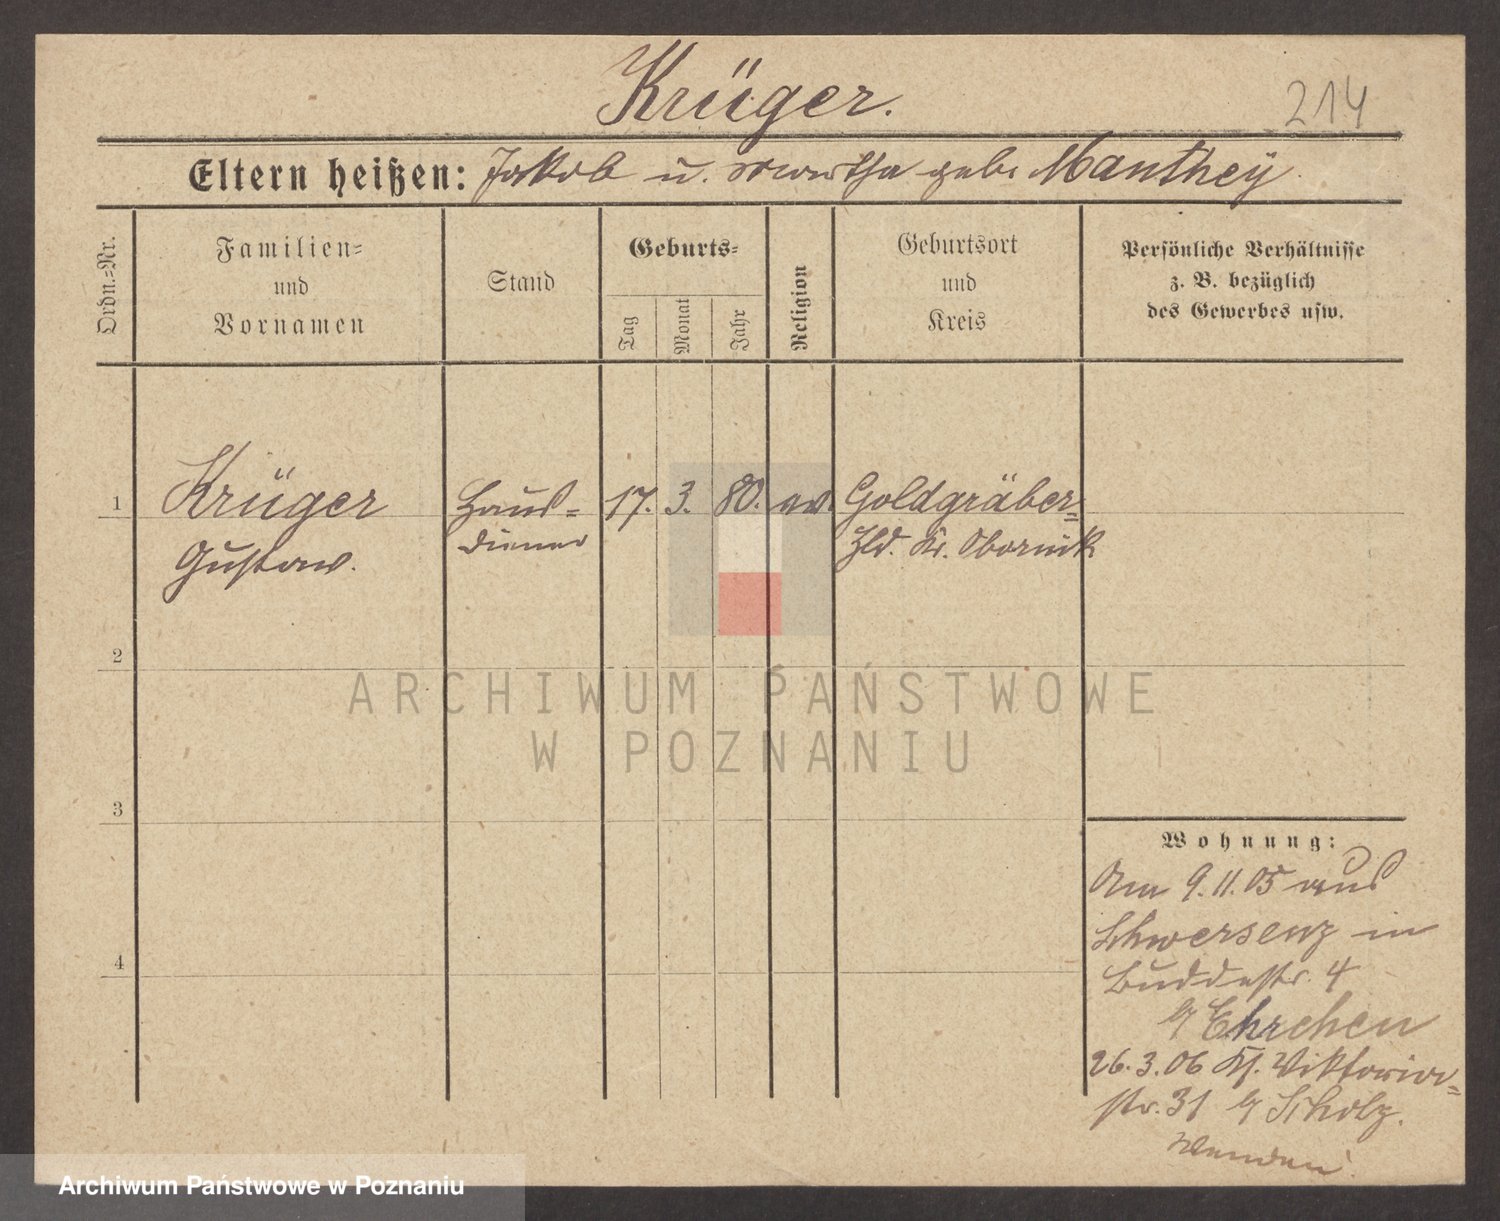 Krüger.
214
Eltern heißen: Jakob u. geb. Manthey
Ordn.=Nr.
Familien=
und
Vornamen
Stand
Geburts=
Tag
Monat
Jahr
Religion
Geburtsort
und
Kreis
Persönliche Verhältnisse
z. B. bezüglich
des Gewerbes usw.
1
Krüger
Gustav.
Haus=
diener
17. 3. 80. ev.
Goldgräber=
Hld. Kr. Obornik
2
3
4
Wohnung:
Am 9.11.05 aus
Schwersenz in
Buddestr. 4
b/ Ehrchen
26.3.06 Kl. Viktoria=
str. 31 b/ Scholz.
Wenden
ARCHIWUM PAŃSTWOWE
W POZNANIU
Archiwum Państwowe w Poznaniu